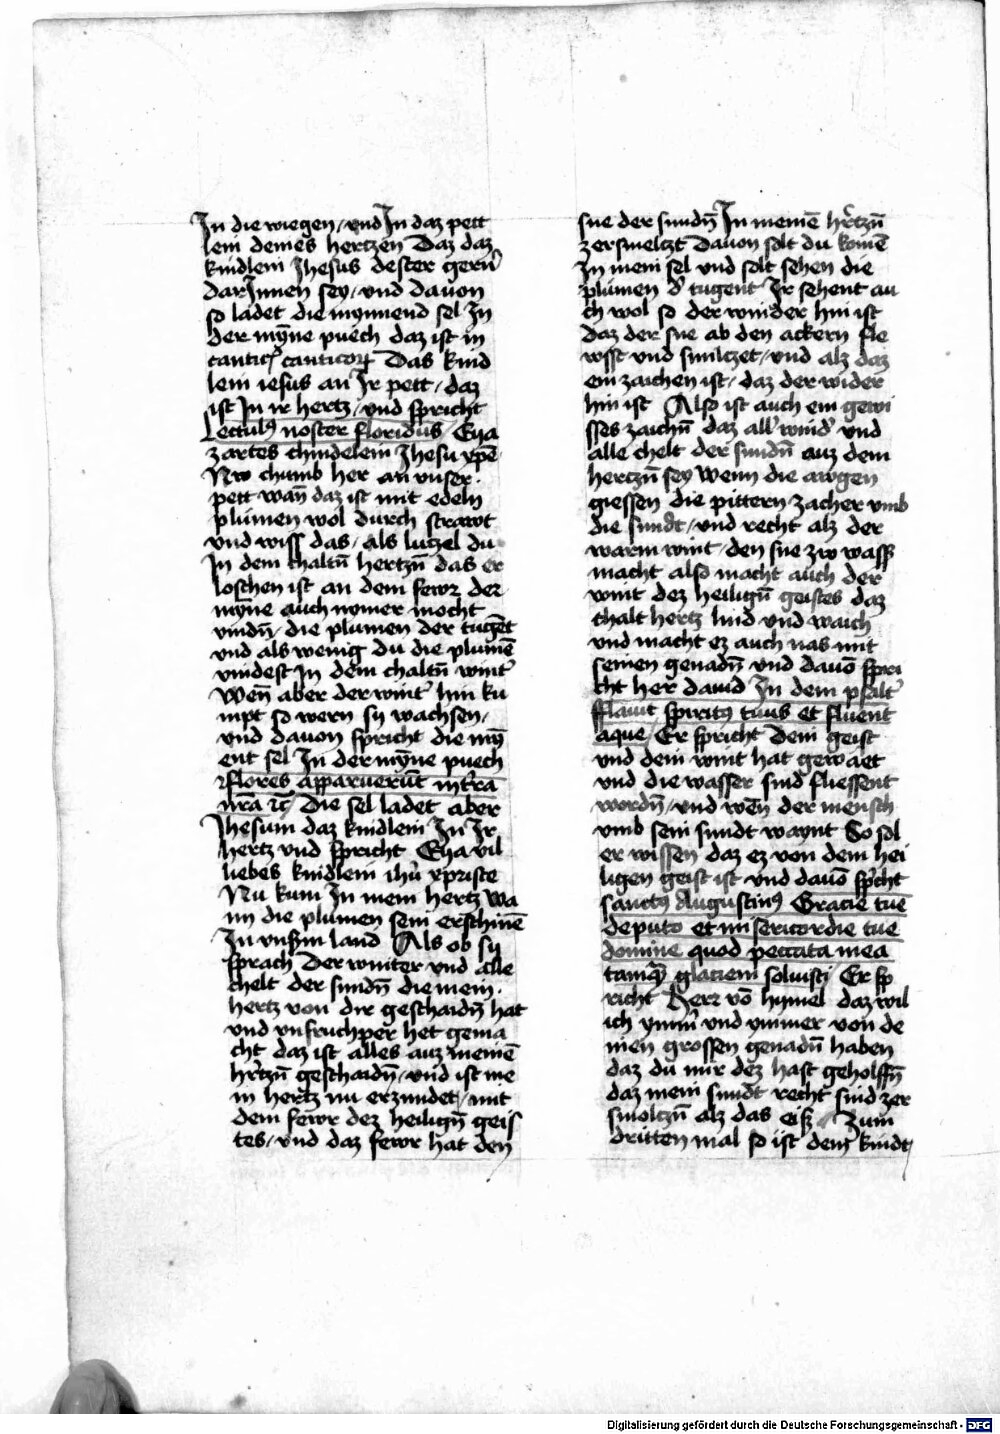 In die wiegen / vnd In daz pett
lein deines hertzen Daz daz
kindlein Jhesus dester gern̄
dar Innen sey / vnd dauon
so ladet die mynnend sel In
der mȳne puech daz ist in
cantic̄ canticoꝝ Das kind
lein iesus an Ir pett / daz
ist In ir hertz / vnd spricht
Lectulꝰ noster floridus / Eya
zartes chindelein Jhesu xpē
Nw chumb her an vnser
pett wan̄ daz ist mit edeln
plůmen wol durch strawt
vnd wiss das / als lutzel du
In dem chaltn̄ hertzn̄ das er
loschen ist an dem fewr der
mȳne auch nymer mocht
vindn̄ / die plumen der tugēt
vnd als wenig du die plumē
vindest In dem chaltn̄ wint̄
Wen̄ aber der wint̄ hin ku
mpt so wern sy wachsen /
vnd dauon spricht die mȳ
ent sel In der mȳne puech
flores apparuerūt in t̄ra
nr̄a ꝛc̄ Die sel ladet aber
Jhesum daz kindlein In Ir
hertz vnd spricht Eya vil
liebes kindlein ihū xpriste
Nu kum In mein hertz wa
nn die plumen sein erschinē
In vnsm̄ land Als ob sy
sprach Der winter vnd alle
chelt der sundn̄ die mein
hertz von dir geschaidn̄ hat
vnd vnfruchper het gema
cht daz ist alles auz meinē
hr̄tzn̄ geschaidn̄ / vnd ist me
in hertz nu erzundet / mit
dem fewr dez heilign̄ geis
tes / vnd daz fewr hat den
sne der sundn̄ In meinē hr̄tzn̄
zersmeltzt Dauon solt du komē
In mein sel vnd solt sehen die
plůmen d̄ tugent Ir sehent au
ch wol so der winder hin ist
daz der sne ab den ackern fle
wsst vnd smiltzet / vnd alz daz
ein zaichen ist / daz der wider
hin ist Also ist auch ein gewi
sses zaichn̄ daz all̄ wind̄ vnd
alle chelt der sundn̄ auz dem
hertzn̄ sey Wenn die awgen
giessen die pittern zacher vmb
die sundt / vnd recht alz der
warm wint / den sne zw wass̄
macht also macht auch der
wint dez heilign̄ geistes daz
chalt hertz lind vnd waich
vnd macht ez auch nas mit
seinen genadn̄ vnd dauō spri
cht her dauid In dem psalt̄
flauit spiritꝰ tuus et fluent
aque / Er spricht Dein geist
vnd dein wint hat gewaet
vnd die wasser sind fliessent
wordn̄ / vnd wēn der mensch
vmb sein sundt waynt So sol
er wissen daz ez von dem hei
ligen geist ist vnd dauō sp̄cht
sanctꝰ Augustinꝰ Gracie tue
deputo et misericordie tue
domine quod peccata mea
tamqᷓ glaciem soluisti Er sp
richt Herr vō hymel daz wil
ich ymm̄ vnd ymmer von de
inen grossen genadn̄ haben
daz du mir dez hast geholffn̄
daz mein sundt recht sind zer
smoltzn̄ alz das eiß Zum
dritten mal so ist dem̄ kindt
Digitalisierung gefördert durch die Deutsche Forschungsgemeinschaft - DFG